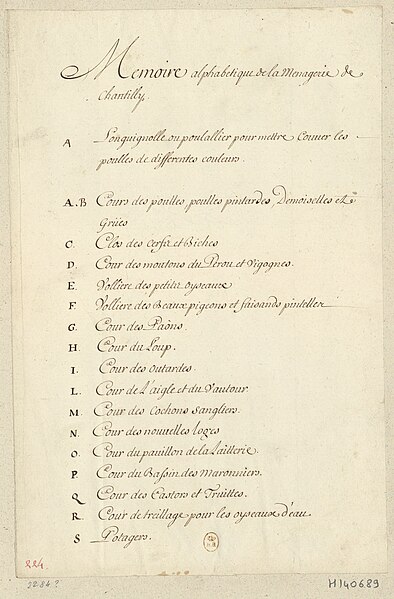 Memoire alphabetique de la Menagerie de
Chantilly.
A Longuignolle ou poulallier pour mettre Couuer les
poulles de differentes couleurs.
A.B Cours des poulles, poulles pintardes, Demoiselles et
Grües
C. Clos des Cerfs et Biches
D. Cour des moutons du Pérou et Vigognes.
E. Volliere des petits oyseaux
F. Volliere des Beaux pigeons et faisands pintellez
G. Cour des Paöns.
H. Cour du Loup.
I. Cour des outardes.
L. Cour de L'aigle et du Vautour
M. Cour des Cochons Sangliers.
N. Cour des nouuelles loges
O. Cour du pauillon de la Laitterie.
P. Cour du Bassin des Maronniers.
Q Cour des Castors et Truittes.
R. Cour de treillage pour les oyseaux d'eau.
S Potagers.
224
2284.?
H140689